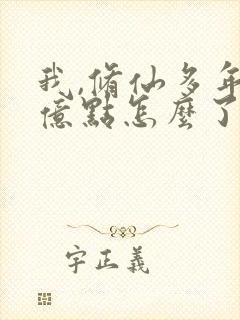 我,脩仙多年
億點怎麼了
宇正義